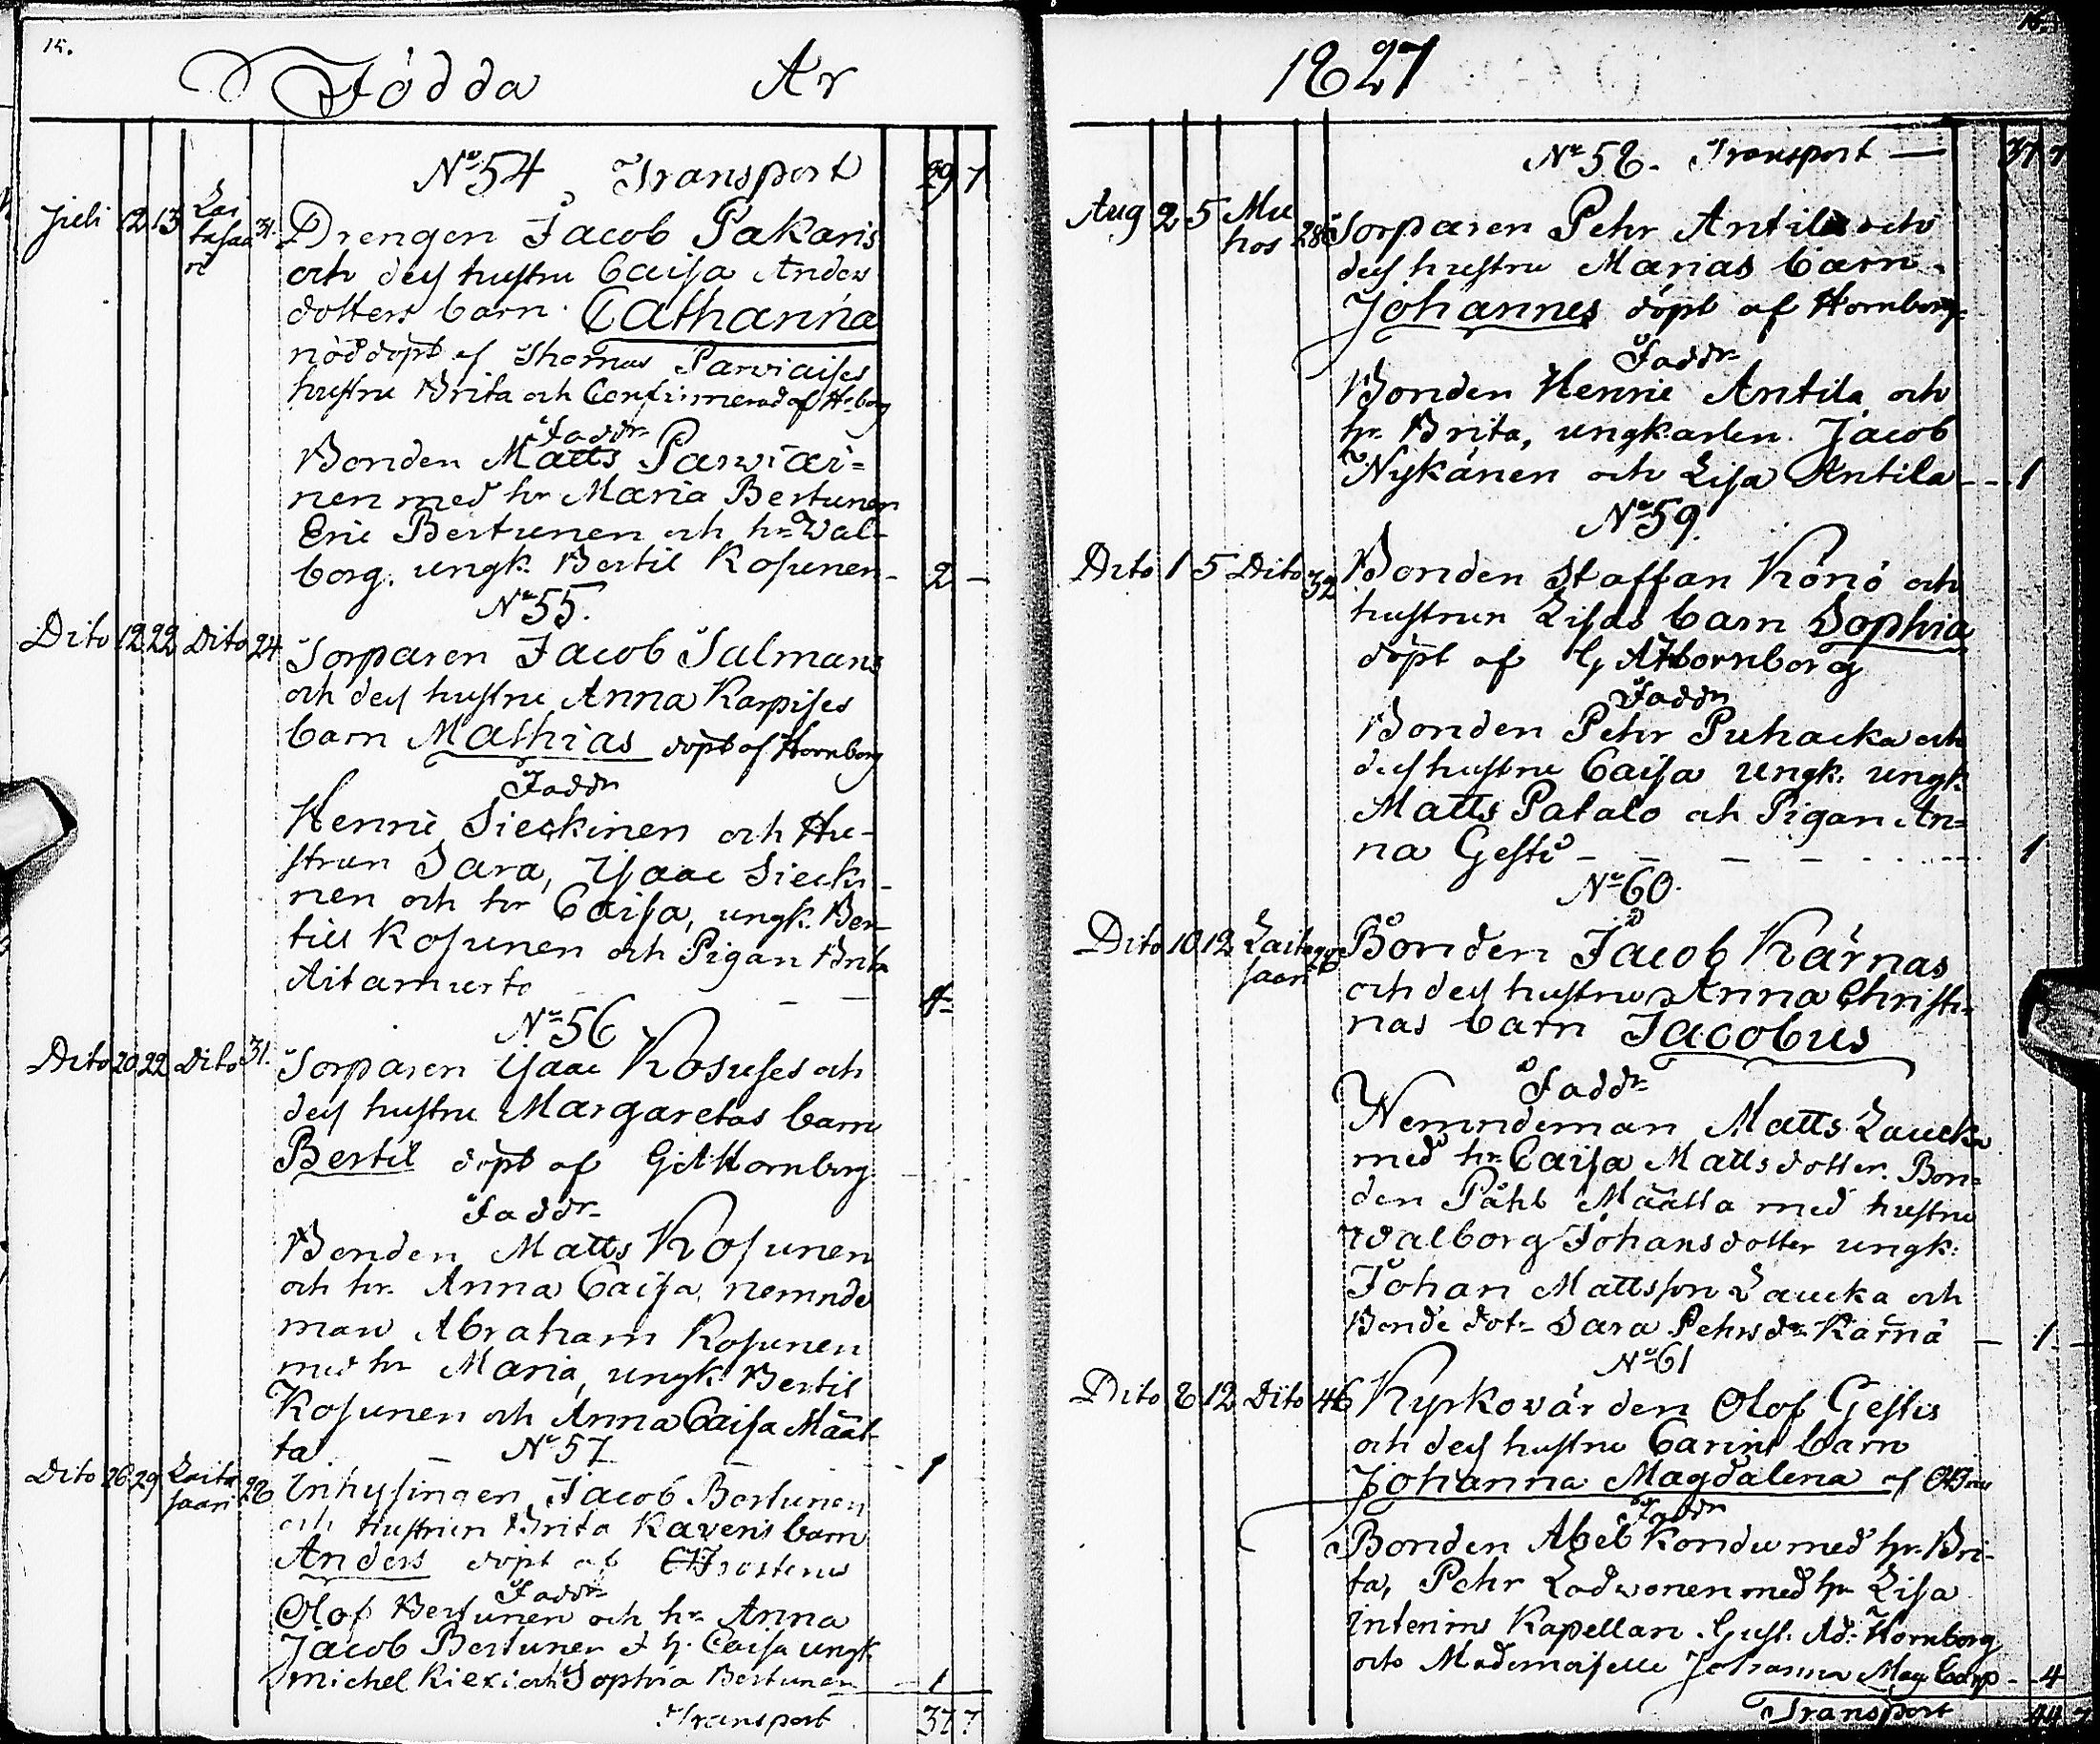 15.
Födda År
No 54 Transport 29 7
Juli 12 13 Lai
tasaa
ri 31. Drengen Jacob Pakaris
och dess hustru Caisa Anders
dotters barn Catharina
nöddöpt af Thomas Parviaises
hustru Brita och Confirmerad af Hborg
Faddr
Bonden Matts Parwiai=
nen med hr Maria Bertunen
Eric Bertunen och hr Wal-
borg. ungk. Bertil Kosunen - 2 -
No 55.
Dito 12 22 Dito 24 Torparen Jacob Salmans
och dess hustru Anna Karpises
barn Mathias döpt af Hornborg
Faddr
Henric Sieckinen och Hu-
strun Sara, Isaac Siecki-
nen och hr Caisa, ungk. Ber-
till Kosunen och Pigan Brita
Aitamurto - - 4
No 56
Dito 20 22 Dito 31. Torparen Isaac Kosuses och
dess hustru Margaretas barn
Bertil döpt af G A Hornborg
Faddr
Bonden Matts Kosunen
och hr. Anna Caisa, nemnde
man Abraham Kosunen
med hr Maria, ungk. Bertil
Kosunen och Anna Caisa Määt-
ta - - - 1
No 57
Dito 26 29 Laita
saari 28 Inhysingen Jacob Bertunen
och hustrun Brita Kavens barn
Anders döpt af Frosterus
Faddr
Olof Bertunen och hr Anna
Jacob Bertunen d h. Caisa ungk
Michel Kiexi och Sophia Bertunen - 1
Transport 37 7
15.
1827
No 58. Transport — 37 7
Aug 2 5 Mu
hos 28 Torparen Pehr Antila och
dess hustru Marias barn
Johannes döpt af Hornborg
Faddr
Bonden Henric Antila och
hr. Brita, ungkarlen Jacob
Nykänen och Lisa Antila - - 1
No 59
Dito 1 5 Dito 32 Bonden Staffan Könö och
hustrun Lisas barn Sophia
döpt af G A Hornborg
Faddr
Bonden Pehr Puhacka och
dess hustru Caisa ungk. ungk.
Matts Patalo och Pigan An=
na Gesti - - - - 1
No 60.
Dito 10 12 Laita
saari Bonden Jacob Kärnas
och dess hustru Anna Christi-
nas barn Jacobus
Faddr
Nemndeman Matts Laucka
med hr Caisa Mattsdotter. Bon=
den Påhl Määtta med hustru
Walborg Johansdotter ungk:
Johan Mattsson Laucka och
Bonde dotr Sara Pehrsdr Kärnä — 1 -
No 61
Dito 8 12 Dito 46 Kyrkovärden Olof Gestis
och dess hustru Carins barn
Johanna Magdalena af
Faddr
Bonden Abel Kondu med hr. Bri-
ta, Pehr Lodwonen med hr Lisa
Interims Kapellan Gust. Ad: Hornborg
och Mademoiselle Johanna Mag - - 4
Transport 44 7